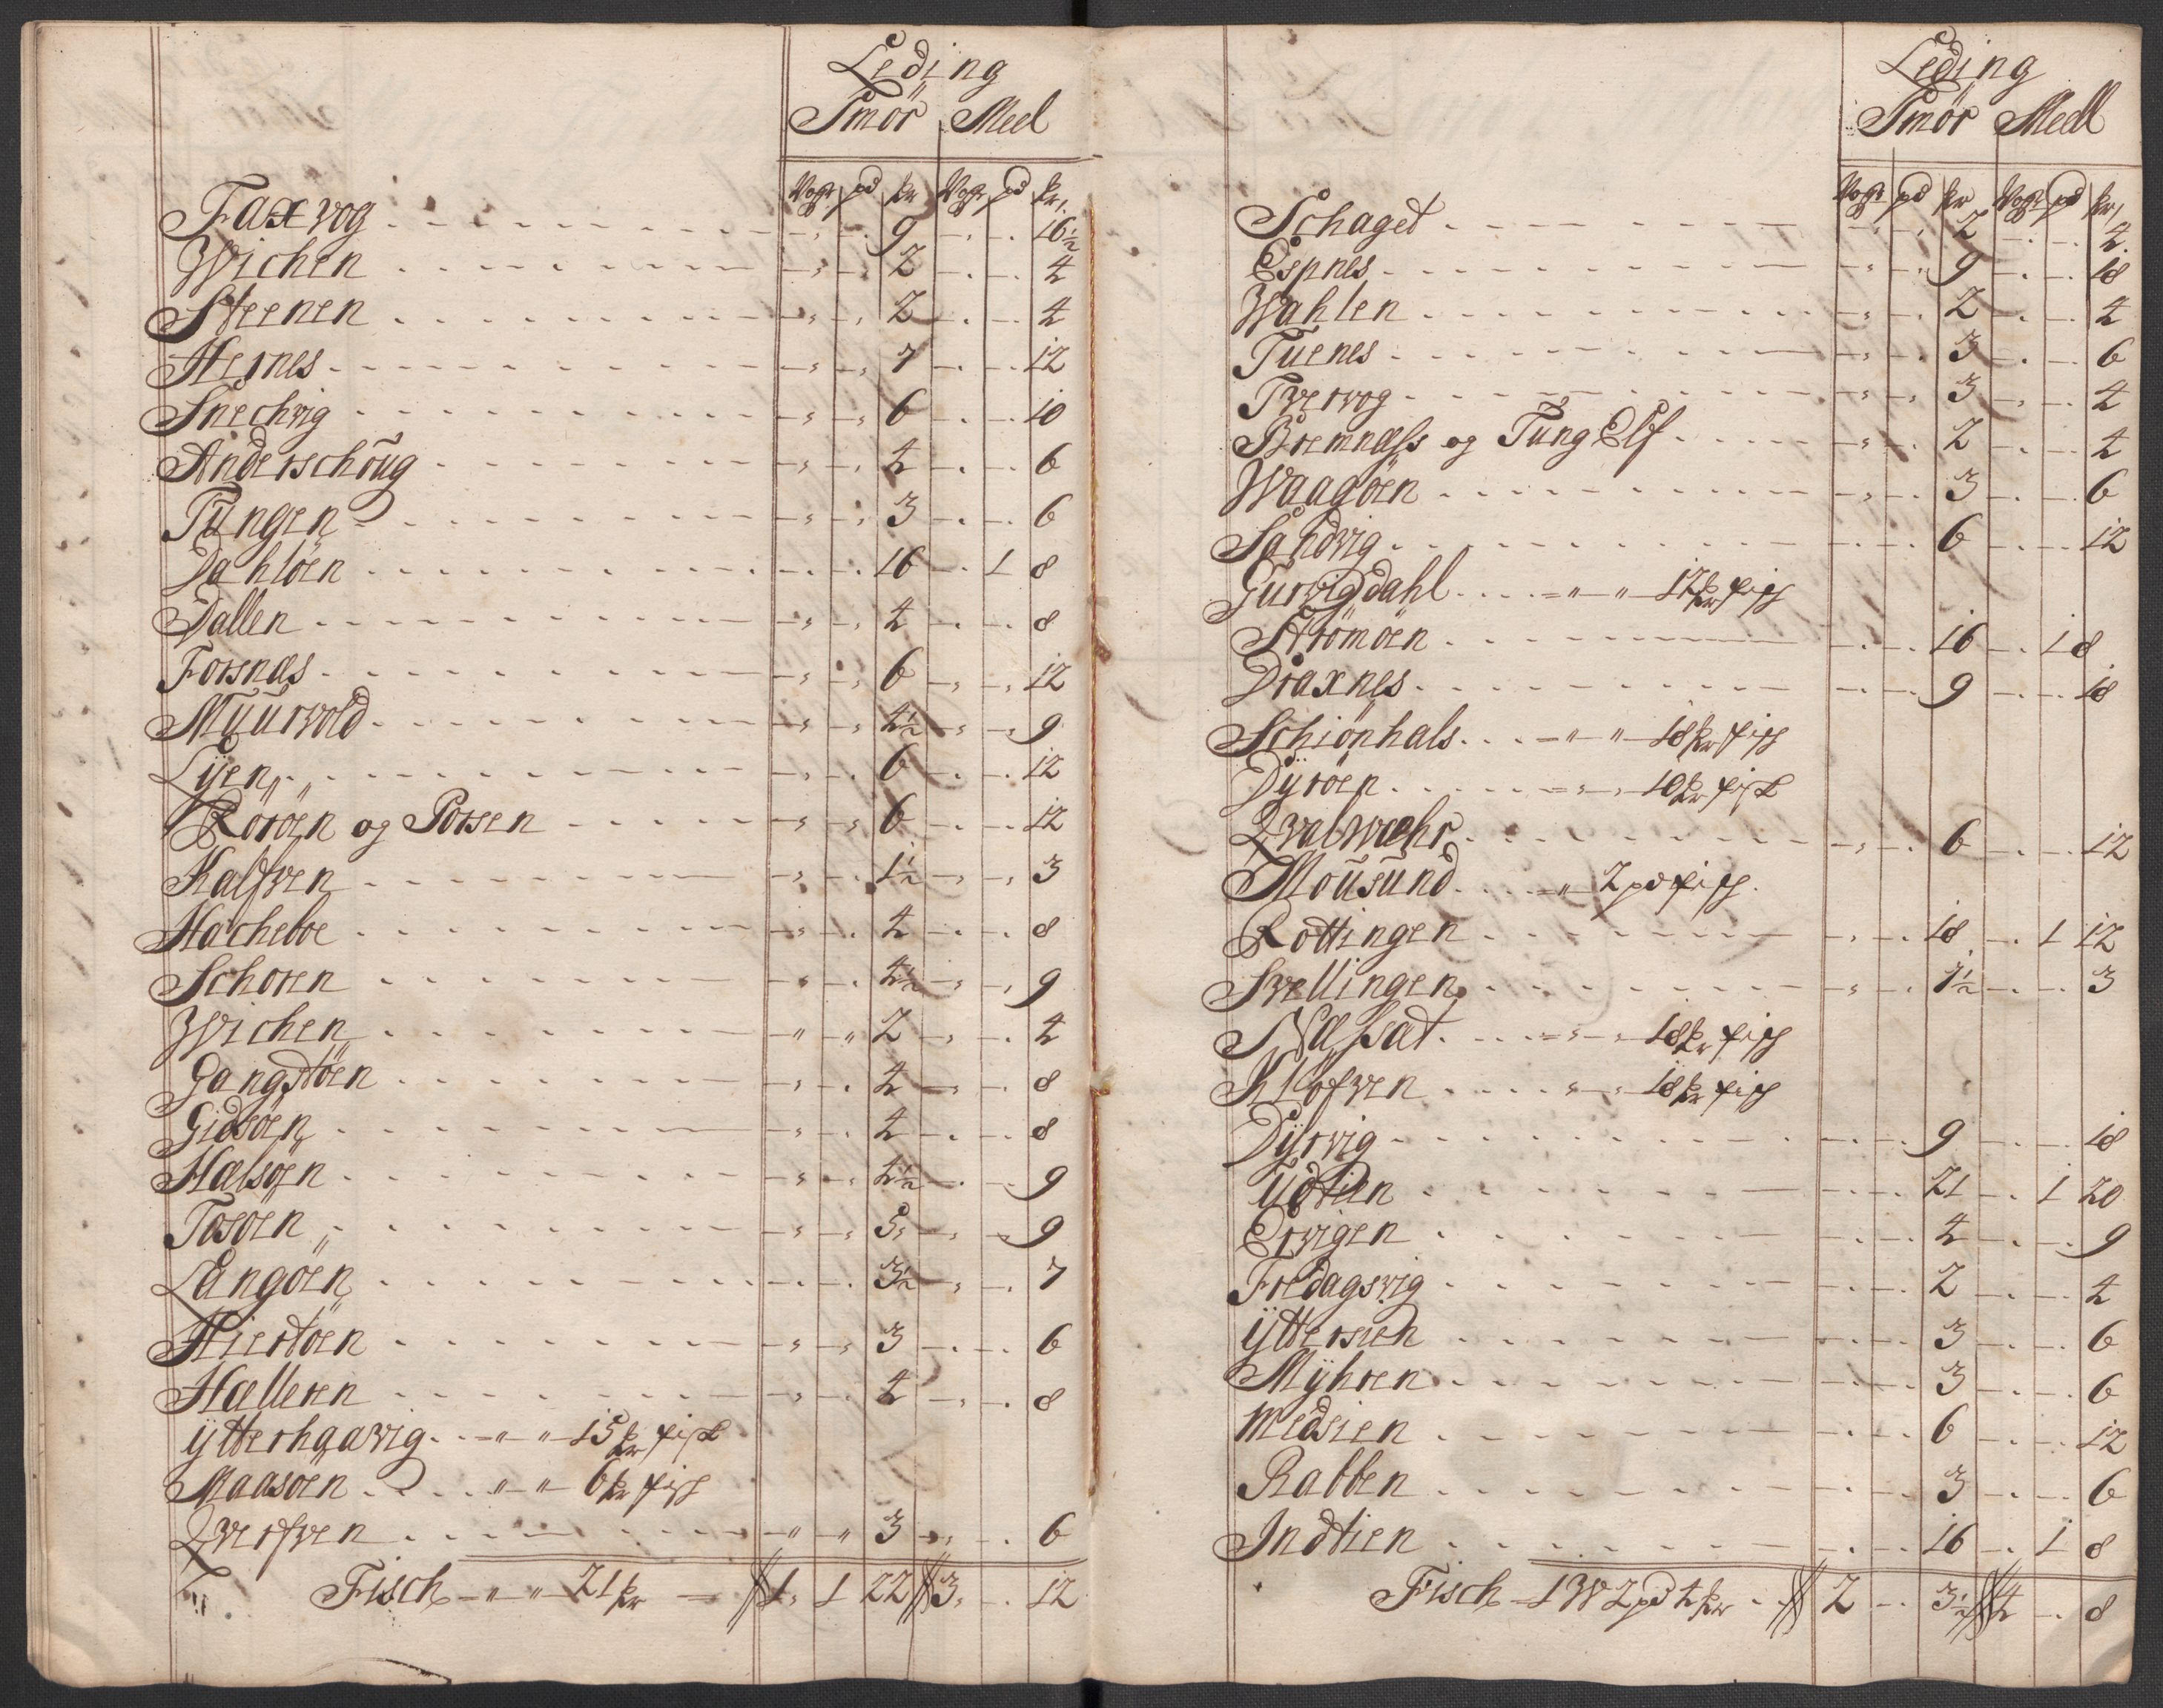 Leding
Smör Meel
Vogr pd kr Vogr pd kr
Faxvog 9 16½
Wichen 2 4
Steenen 2 4
Hernes 7 12
Snechvig 6 10
Anderschoug 4 6
Tungen 3 6
Dahlöen 16 1 8
Dallen 4 8
Forsnæs 6 12
Muurvold 4½ 9
Lÿen 6 12
Röröen og Porsen 6 12
Kalfven 1½ 3
Hacheboe 4 8
Schoren 4½ 9
Wichen 2 4
Gangstöen 4 8
Gidsöen 4 8
Halsöen 4½ 9
Tosöen 5 9
Langöen 3½ 7
Hiertöen 3 6
Hælleren 4 8
ÿtterhgavig 15 kr fisk
Maasöen 6 kr fisch
Qverfven 3 6
Fisch 21 kr 1 1 22 3 12
Leding
Smör Meell
Vogr pd kr Vogr pd kr
Schaget 2 4
Espnes 9 18
Wahlen 2 4
Tuenes 3 6
Tvervog 3 4
Bremnæss og Tung Elf 2 4
Waagöen 3 6
Sandvig 6 12
Gurvigdahl 12 kr fisch
Strömöen 16 1 8
Draxnes 9 18
Schiönhals 18 kr fisch
Dÿröen 10 kr fisk
Qvalwæhr 6 12
Mousund 2 pd fisch
Rottingen 18 1 12
Svellingen 1½ 3
Næssat 18 kr fisch
Klofven 18 kr fisch
Dÿrvig 9 18
Ydtien 21 1 20
Ervigen 4 9
Fredagsvig 2 4
ÿttersien 3 6
Mÿhren 3 6
Medsien 6 12
Rabben 3 6
Indtien 16 1 8
Fisch 1 W 2 pd 4 kr 2 3½ 4 8